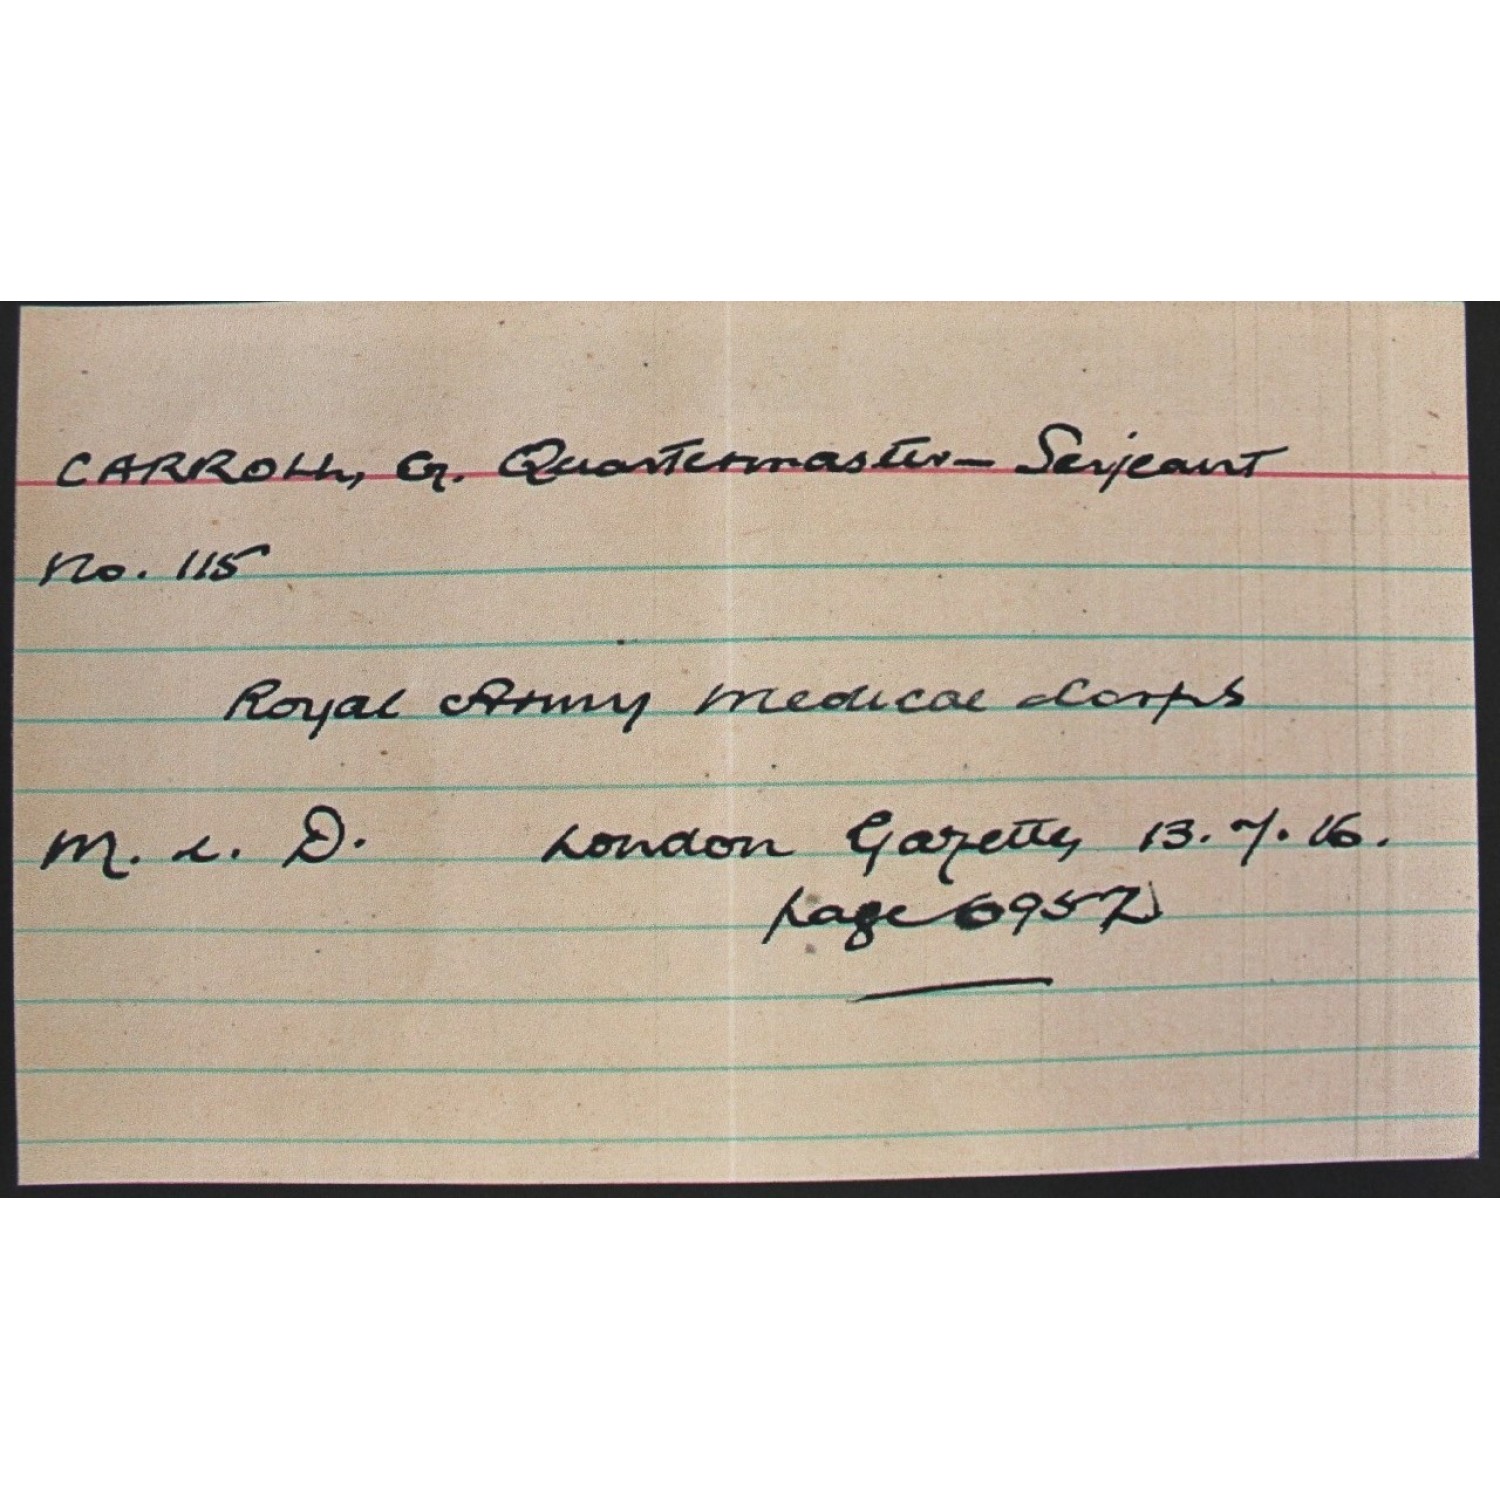 CARROLL, G. Quartermaster-Serjeant
No. 115
Royal Army Medical Corps
M. i. D. London Gazette, 13.7.16.
page 6957